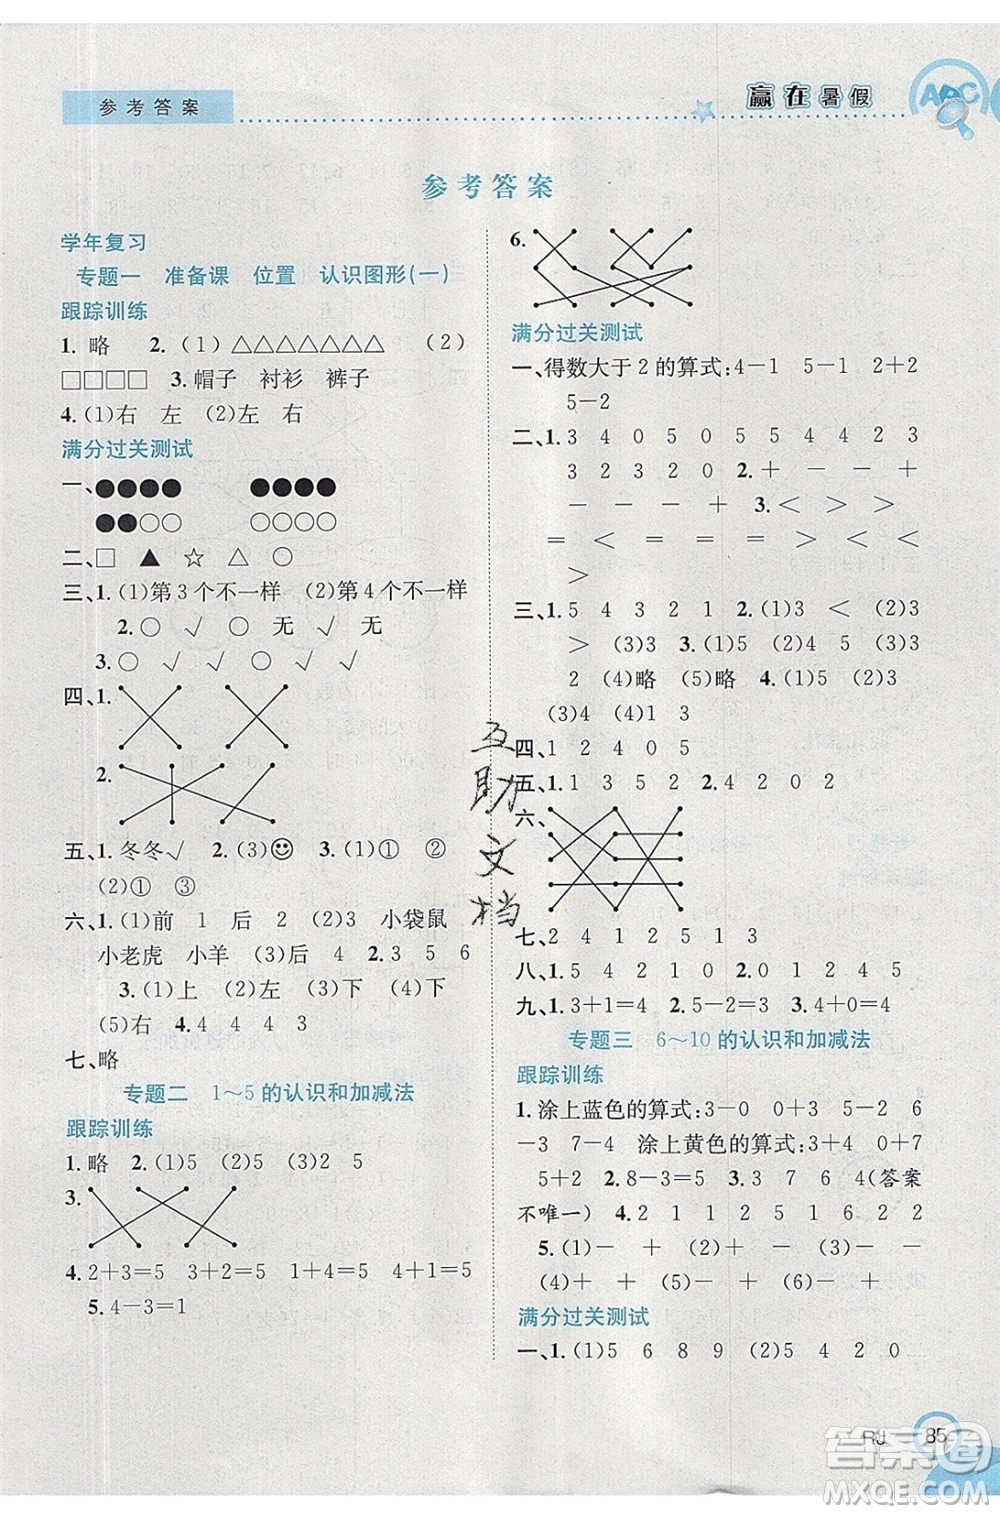 参考答案
赢在暑假
ABC
参考答案
学年复习
专题一 准备课 位置 认识图形(一)
跟踪训练
1. 略 2. (1) △△△△△△△ (2)
□□□□ 3. 帽子 衬衫 裤子
4. (1)右 左 (2)左 右
满分过关测试
一、●●●● ●●●●
●●○○ ○○○○
二、□ ▲ ☆ △ ○
三、1. (1)第3个不一样 (2)第4个不一样
2. ○ √ ○ 无 √ 无
3. ○ √ √ ○ √ √
四、1.
2.
五、1. 冬冬√ 2. (3)☺ 3. (1)① ②
(2)① ③
六、1. (1)前 1 后 2 (2)3 小袋鼠
小老虎 小羊 (3)后 4 2. 3 5 6
3. (1)上 (2)左 (3)下 (4)下
(5)右 4. 4 4 4 3
七、略
专题二 1～5的认识和加减法
跟踪训练
1. 略 2. (1)5 (2)5 (3)2 5
3.
4. 2+3=5 3+2=5 1+4=5 4+1=5
5. 4-3=1
6.
满分过关测试
一、得数大于2的算式:4-1 5-1 2+2
5-2
二、1. 3 4 0 5 0 5 5 4 4 2 3
3 2 3 2 0 2. + - - +
- - + + 3. < > > >
= < = = > > < = <
>
三、1. 5 4 3 2 1 2. (1)3 < (2)3
> (3)3 3. (1)5 2 4 5 (2)4 (3)3
2 (4)略 (5)略 4. (1)5 (2)3
(3)4 (4)1 3
四、1 2 4 0 5
五、1. 1 3 5 2 2. 4 2 0 2
六、
七、2 4 1 2 5 1 3
八、1. 5 4 0 1 2 2. 0 1 2 4 5
九、1. 3+1=4 2. 5-0=5 3. 4+0=4
专题三 6～10的认识和加减法
跟踪训练
1. 涂上蓝色的算式:3-0 0+3 5-2 6
-3 7-4 涂上黄色的算式:4+3 0+7
5+2 2. 8-3=5 3. 3 7 6 4(答案
不唯一) 4. 2 1 1 2 5 1 6 2 2
5. (1)- + (2)+ - (3)- +
(4)+ - (5)+ + (6)- +
满分过关测试
一、1. (1)5 6 8 9 (2)5 4 2 0
互助文档
RJ 85
答案圈
MXQE.COM